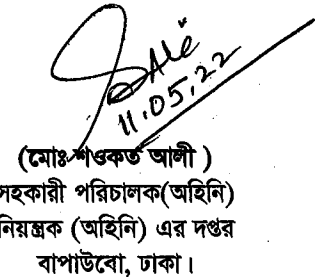 11.05.22
(মোঃ শওকত আলী )
সহকারী পরিচালক(অহিনি)
নিয়ন্ত্রক (অহিনি) এর দপ্তর
বাপাউবো, ঢাকা।